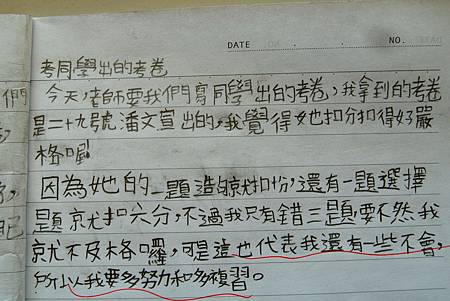 DATE . . NO.
考同學出的考卷
今天,老師要我們寫同學出的考卷,我拿到的考卷
是二十九號潘文宣出的,我覺得她扣分扣得好嚴
格喔!
因為她的一題造句就扣份,還有一題選擇
題就扣六分,不過我只有錯三題,要不然我
就不及格囉,可是這也代表我還有一些不會,
所以我要多努力和多複習。
們